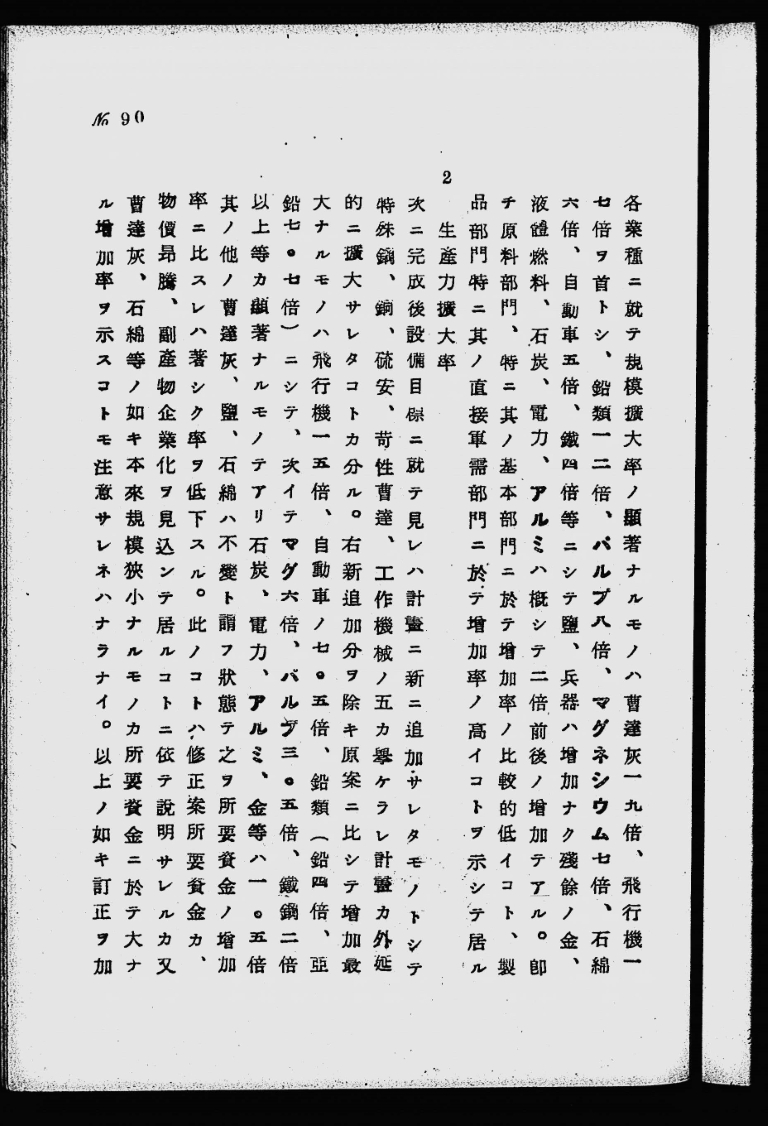 № 90
各業種ニ就テ規模擴大率ノ顯著ナルモノハ曹達灰一九倍、飛行機一
七倍ヲ首トシ、鉛類一二倍、パルプ八倍、マグネシウム七倍、石綿
六倍、自動車五倍、鐵四倍等ニシテ鹽、兵器ハ增加ナク殘餘ノ金、
液體燃料、石炭、電力、アルミハ概シテ二倍前後ノ增加テアル。卽
チ原料部門、特ニ其ノ基本部門ニ於テ增加率ノ比較的低イコト、製
品部門特ニ其ノ直接軍需部門ニ於テ增加率ノ高イコトヲ示シテ居ル
2 生產力擴大率
次ニ完成後設備目標ニ就テ見レハ計畫ニ新ニ追加サレタモノトシテ
特殊鋼、銅、硫安、苛性曹達、工作機械ノ五カ擧ケラレ計畫カ外延
的ニ擴大サレタコトカ分ル。右新追加分ヲ除キ原案ニ比シテ增加最
大ナルモノハ飛行機一五倍、自動車ノ七。五倍、鉛類（鉛四倍、亞
鉛七。七倍）ニシテ、次イテマグ六倍、パルプ三。五倍、鐵鋼二倍
以上等カ顯著ナルモノテアリ石炭、電力、アルミ、金等ハ一。五倍
其ノ他ノ曹達灰、鹽、石綿ハ不變ト謂フ狀態テ之ヲ所要資金ノ增加
率ニ比スレハ著シク率ヲ低下スル。此ノコトハ修正案所要資金カ、
物價昂騰、副產物企業化ヲ見込ンテ居ルコトニ依テ說明サレルカ又
曹達灰、石綿等ノ如キ本來規模狹小ナルモノカ所要資金ニ於テ大ナ
ル增加率ヲ示スコトモ注意サレネハナラナイ。以上ノ如キ訂正ヲ加